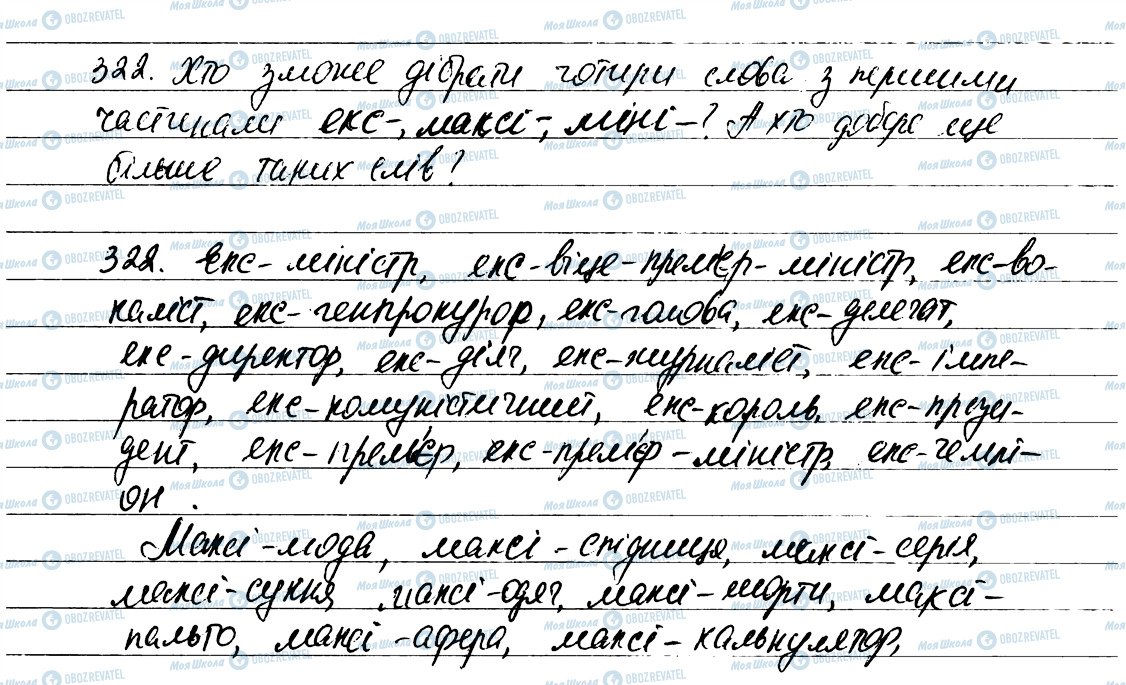 322. Хто зможе дібрати чотири слова з першими
частинами екс-, максі-, міні-? А хто добере ще
більше таких слів?
322. Екс-міністр, екс-віце-прем'єр-міністр, екс-во-
каліст, екс-генпрокурор, екс-голова, екс-делегат,
екс-директор, екс-діяч, екс-журналіст, екс-імпе-
ратор, екс-комуністичний, екс-король, екс-прези-
дент, екс-прем'єр, екс-прем'єр-міністр, екс-чемпі-
он.
Максі-мода, максі-спідниця, максі-серія,
максі-сукня, максі-одяг, максі-шорти, максі-
пальто, максі-афера, максі-калькулятор,